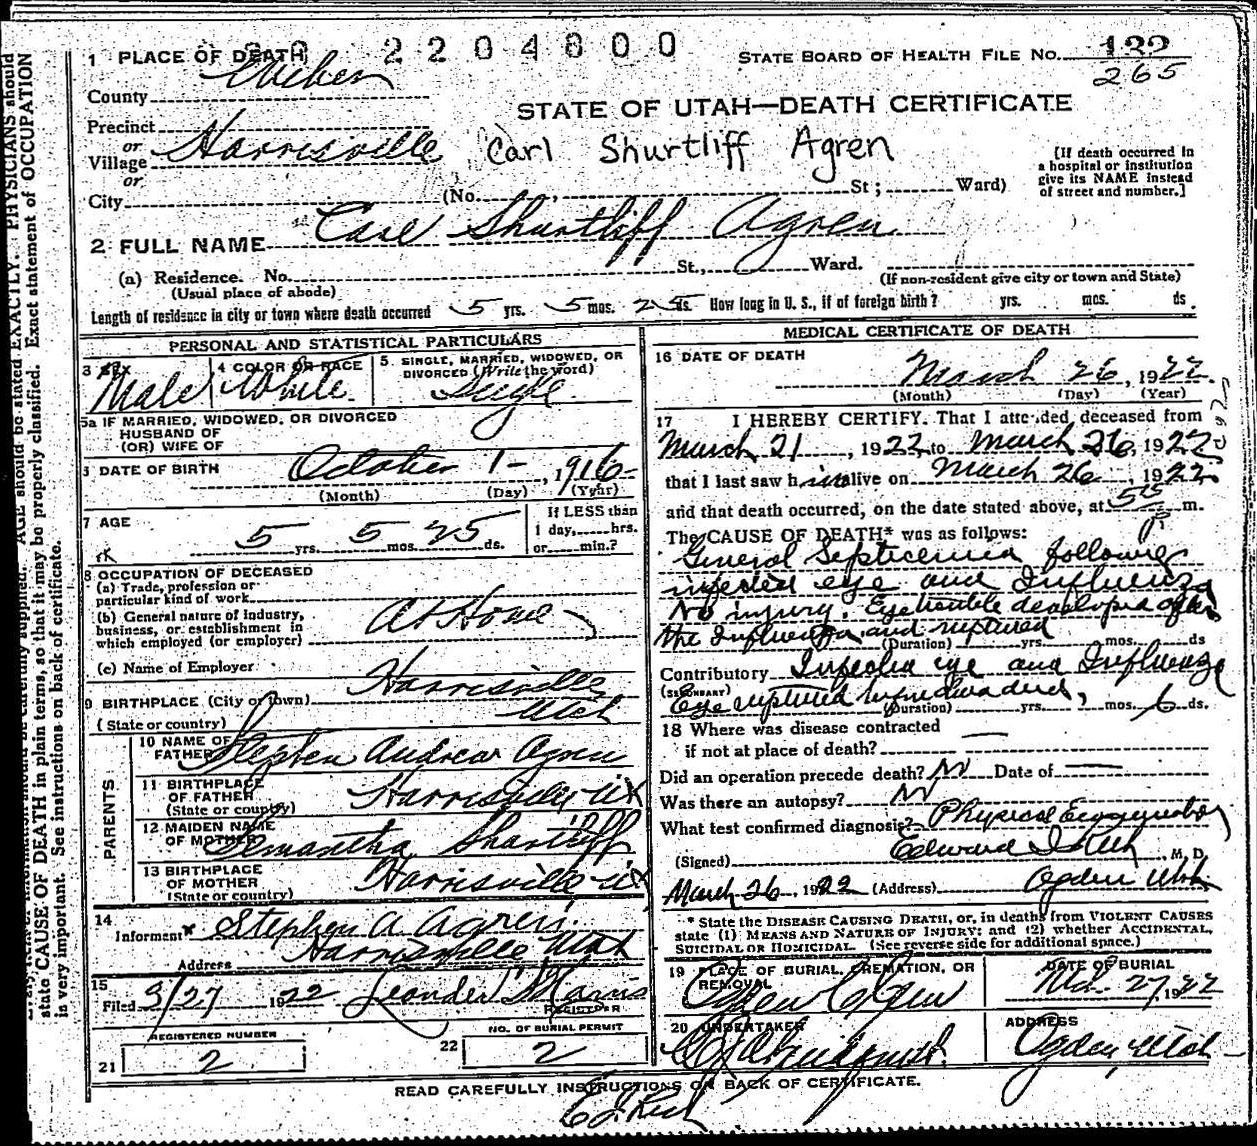 2204800
1 PLACE OF DEATH
STATE BOARD OF HEALTH FILE No. 132
265
County Weber
STATE OF UTAH—DEATH CERTIFICATE
Precinct
or
Village Harrisville
Carl Shurtliff Agren
or
City (No. , St; Ward)
[If death occurred in
a hospital or institution
give its NAME instead
of street and number.]
2 FULL NAME Carl Shurtliff Agren
(a) Residence. No. St., Ward.
(Usual place of abode)
(If non-resident give city or town and State)
Length of residence in city or town where death occurred 5 yrs. 5 mos. 25 ds. How long in U. S., if of foreign birth? yrs. mos. ds.
PERSONAL AND STATISTICAL PARTICULARS
3 SEX
Male
4 COLOR OR RACE
White
5 SINGLE, MARRIED, WIDOWED, OR
DIVORCED (Write the word)
Single
5a IF MARRIED, WIDOWED, OR DIVORCED
HUSBAND OF
(OR) WIFE OF
6 DATE OF BIRTH October 1 - , 1916
(Month) (Day) (Year)
7 AGE
5 yrs. 5 mos. 25 ds.
If LESS than
1 day, hrs.
or min.?
8 OCCUPATION OF DECEASED
(a) Trade, profession or
particular kind of work
(b) General nature of industry,
business, or establishment in
which employed (or employer)
At Home
(c) Name of Employer
9 BIRTHPLACE (City or Town) Harrisville
(State or country) Utah
PARENTS
10 NAME OF
FATHER Stephen Andrew Agren
11 BIRTHPLACE
OF FATHER
(State or country) Harrisville Ut
12 MAIDEN NAME
OF MOTHER Samantha Shurtliff
13 BIRTHPLACE
OF MOTHER
(State or country) Harrisville Ut
14
Informant Stephen A Agren
Address Harrisville Utah
15
Filed 3/27 1922 Leander Harris
REGISTRER
REGISTERED NUMBER
21 2
NO. OF BURIAL PERMIT
22 2
MEDICAL CERTIFICATE OF DEATH
16 DATE OF DEATH
March 26, 1922
(Month) (Day) (Year)
17 I HEREBY CERTIFY, That I attended deceased from
March 21, 1922 to March 26, 1922
that I last saw him alive on March 26, 1922
and that death occurred, on the date stated above, at 5 P m.
The CAUSE OF DEATH* was as follows:
General Septicemia following
infected eye and Influenza
No injury. Eye trouble developed after
the Influenza and ruptured
(Duration) yrs. mos. ds
Contributory Infected eye and Influenza
(SECONDARY) Eye ruptured
(Duration) yrs. mos. 6 ds.
18 Where was disease contracted
if not at place of death?
Did an operation precede death? No Date of
Was there an autopsy? No
What test confirmed diagnosis? Physical Examination
(Signed) Edward I Rich M. D.
March 26, 1922 (Address) Ogden Utah
* State the DISEASE CAUSING DEATH, or, in deaths from VIOLENT CAUSES
state (1) MEANS AND NATURE OF INJURY; and (2) whether ACCIDENTAL,
SUICIDAL OR HOMICIDAL. (See reverse side for additional space.)
19 PLACE OF BURIAL, CREMATION, OR
REMOVAL
Ogden
DATE OF BURIAL
Mch. 27, 1922
20 UNDERTAKER
ADDRESS
Ogden, Utah
READ CAREFULLY INSTRUCTIONS ON BACK OF CERTIFICATE.
E I Rich
AGE should be stated EXACTLY. PHYSICIANS should
state CAUSE OF DEATH in plain terms, so that it may be properly classified. Exact statement of OCCUPATION
is very important. See instructions on back of certificate.